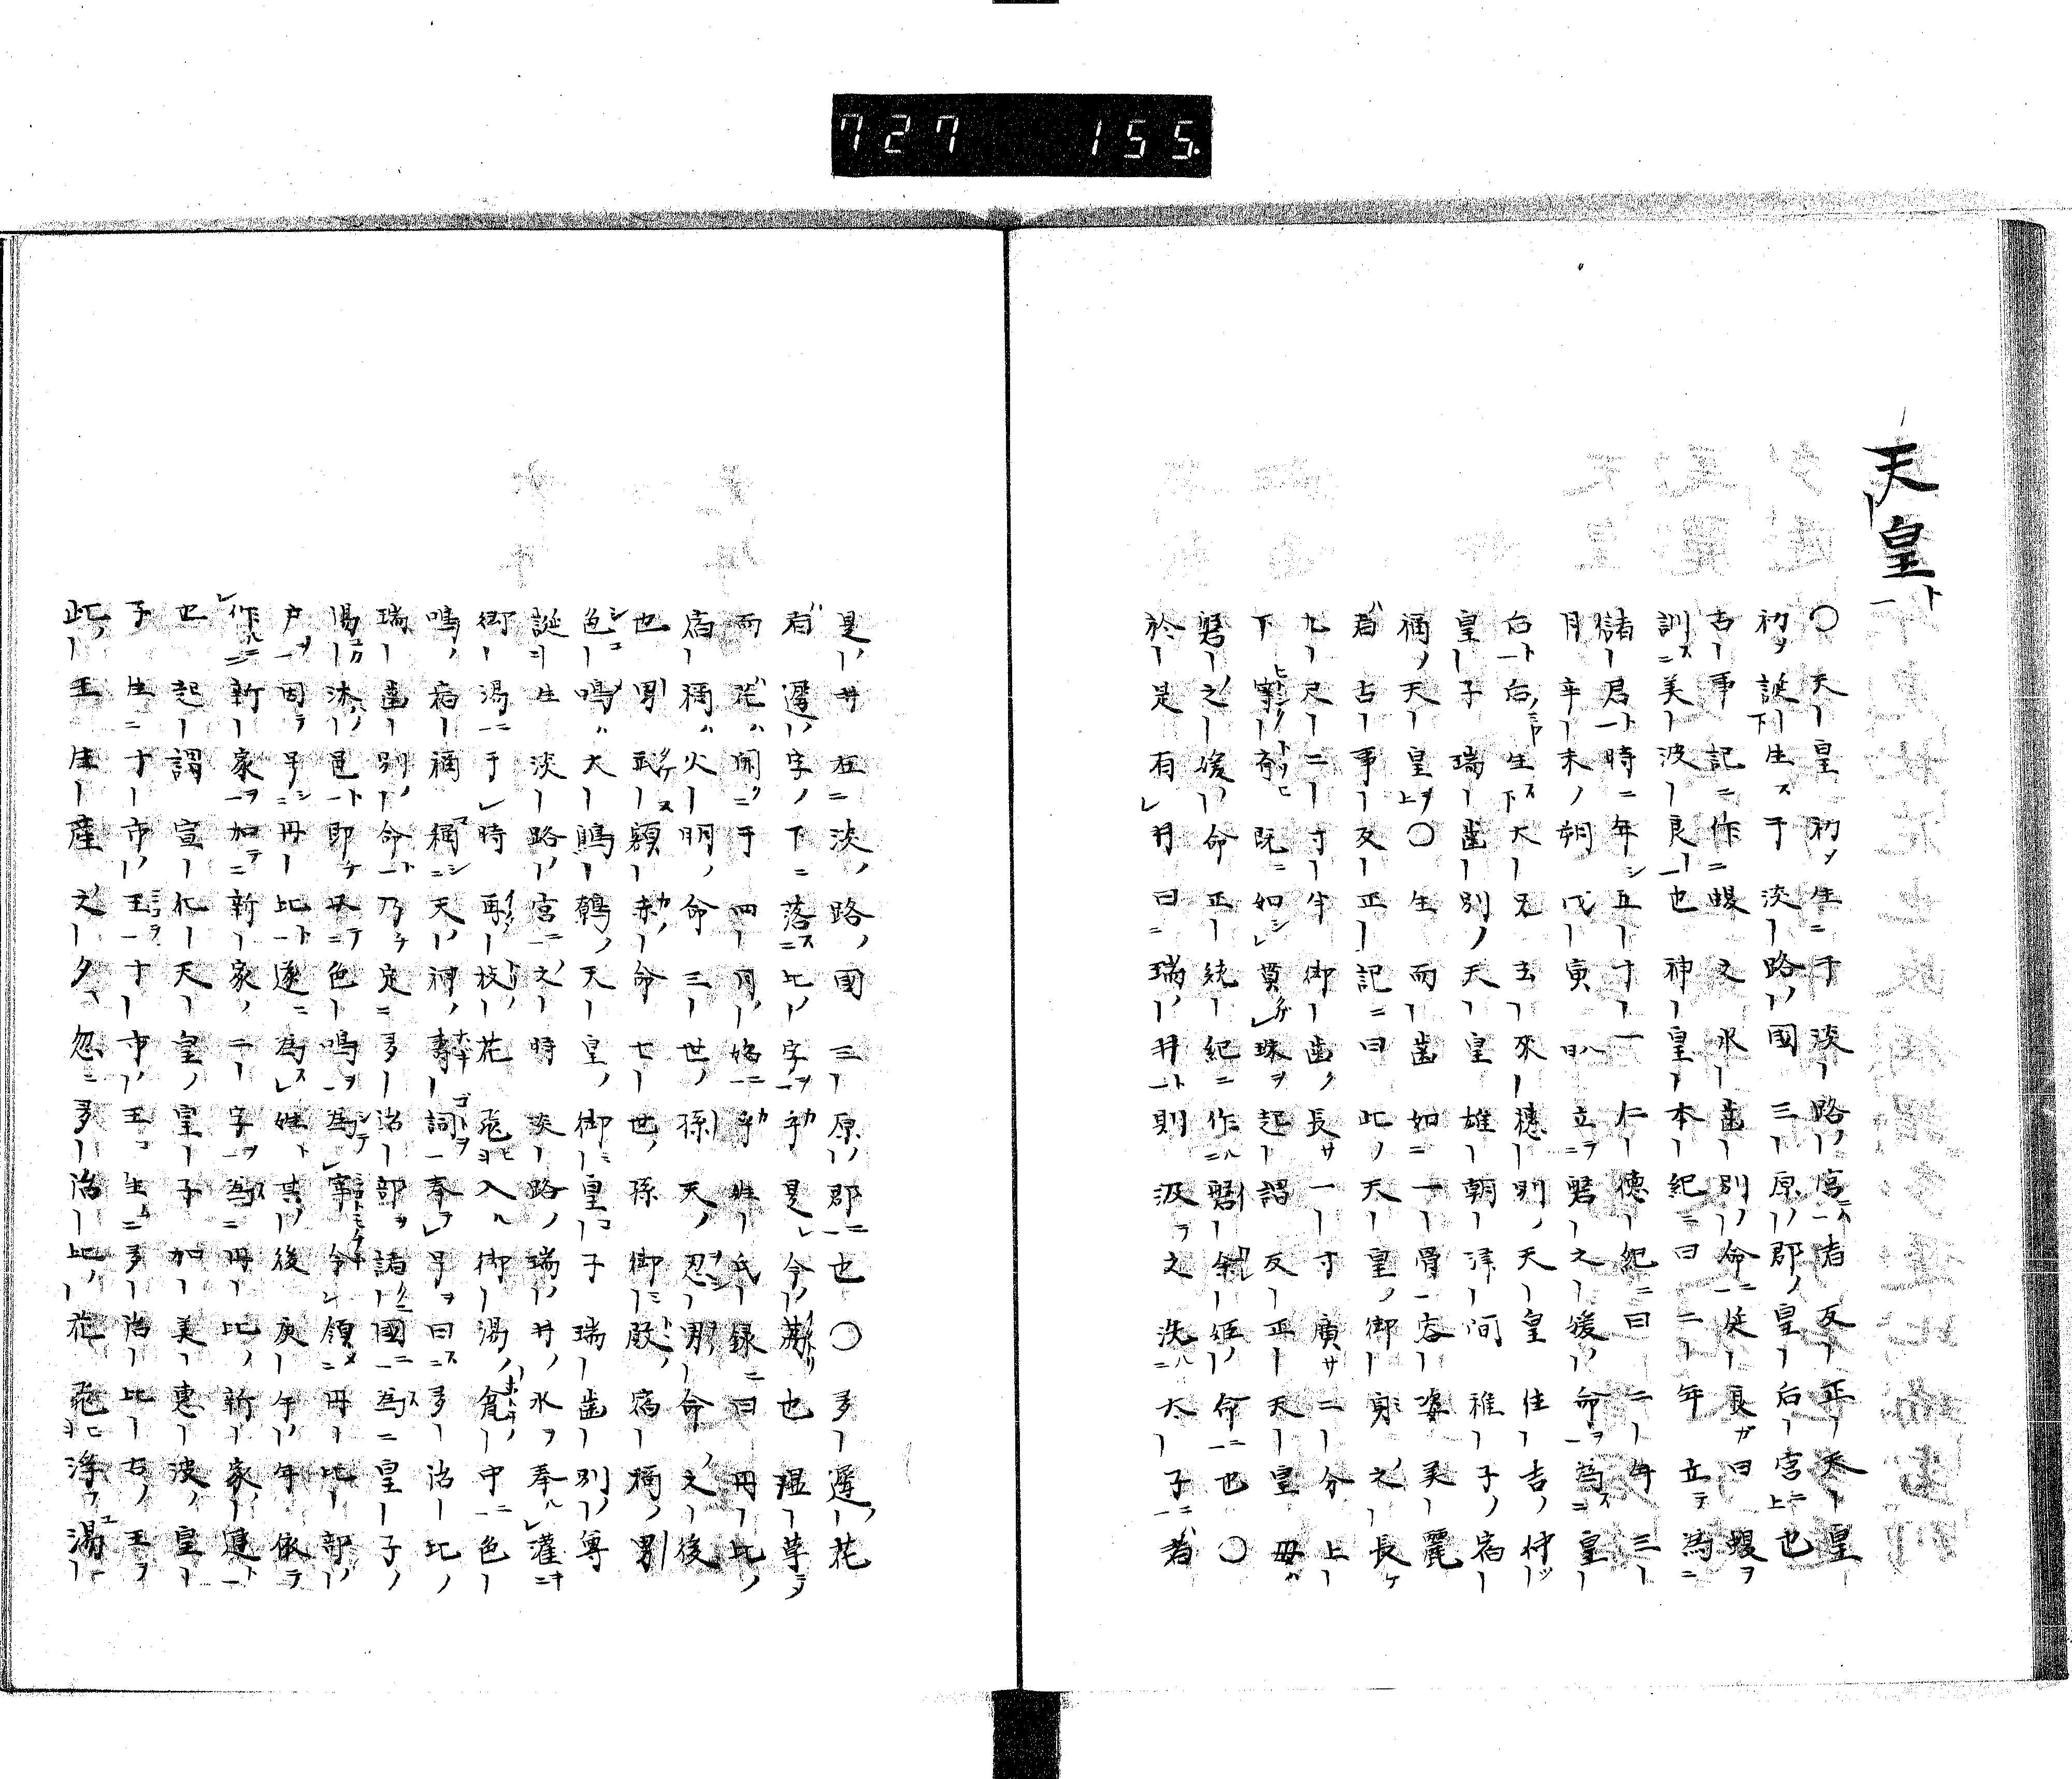 727 155.
天皇
〇天皇初生于淡路宮者反正天皇
初誕生于淡路國三原郡皇后宮也蝮
古事記作蝮之水歯別命延長曰蝮
訓美波良也神皇本紀曰二年立為
儲君時年五十一仁徳紀曰二年三
月辛未朔戊寅立磐之媛命為皇
后后生大兄去來穂別天皇住吉仲
皇子瑞歯別天皇雄朝津間稚子宿
禰天皇〇生而歯如一骨容姿美麗
者古事反正記曰此天皇御身之長
九尺二寸半御歯長一寸廣二分上
下等齊既如貫珠起謂反正天皇母
磐之媛命正統紀作磐余姫命也〇
於是有井曰瑞井則汲之洗太子者
是井在淡路國三原郡也〇多遲花
者遲字下落比字乎是今蕀也湿草
而花開于四月始乎姓氏録曰丹比
宿禰火明命三世孫天忍男命之後
也男武額赤命七世孫御殿宿禰男
色鳴大鷦鷯天皇御皇子瑞歯別尊
誕生淡路宮之時淡路瑞井水奉灌
御湯于時再枝花飛入御湯瓮中色
鳴宿禰稱天神壽詞奉号曰多治比
瑞歯別命乃定多治部諸國為皇子
湯沐邑即以色鳴為宰令領丹比部
戸因号丹比遂為姓其後庚午年依
作新家加新家二字為丹比新家連
也起謂宣化天皇皇子加美惠波皇
子生十市王十市王生多治比古王
此王生産之夕忽多治比花飛浮湯